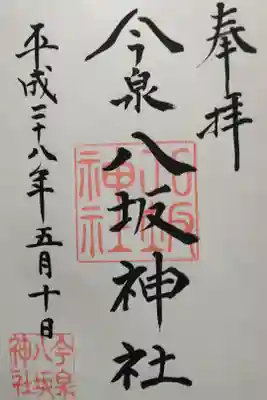 奉拝
今泉八坂神社
八坂神社
平成二十八年五月十日
今泉八坂神社